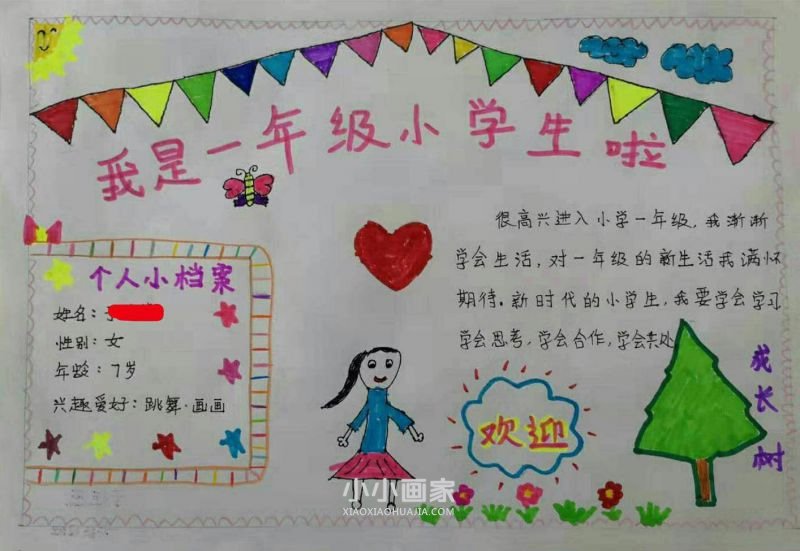 我是一年级小学生啦
个人小档案
姓名：
性别：女
年龄：7岁
兴趣爱好：跳舞·画画
很高兴进入小学一年级，我渐渐
学会生活，对一年级的新生活我满怀
期待。新时代的小学生，我要学会学习
学会思考，学会合作，学会共处
欢迎
成长树
小小画家
XIAOXIAOHUAJIA.COM